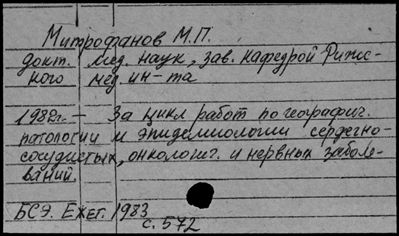 Митрофанов М.П.
докт. мед. наук, зав. кафедрой Рижс-
кого мед. ин-та
1982г. — За цикл работ по географич.
патологии и эпидемиологии сердечно-
сосудистых, онкологич. и нервных заболе-
ваний.
БСЭ. Ежег. 1983
с. 572